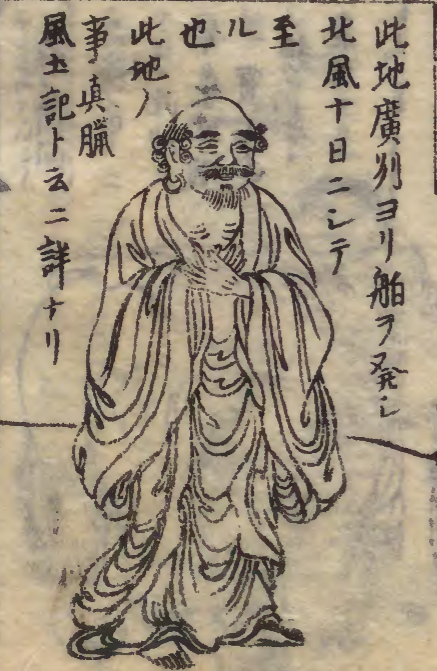 此地廣州ヨリ舶ヲ発シ
北風十日ニシテ
至
ル
也
此地ノ
事真臘
風土記ト云ニ詳ナリ